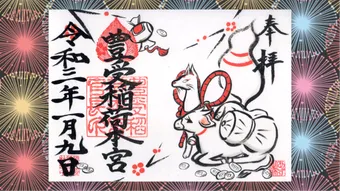 奉拝
豊受稲荷本宮
令和二年一月九日